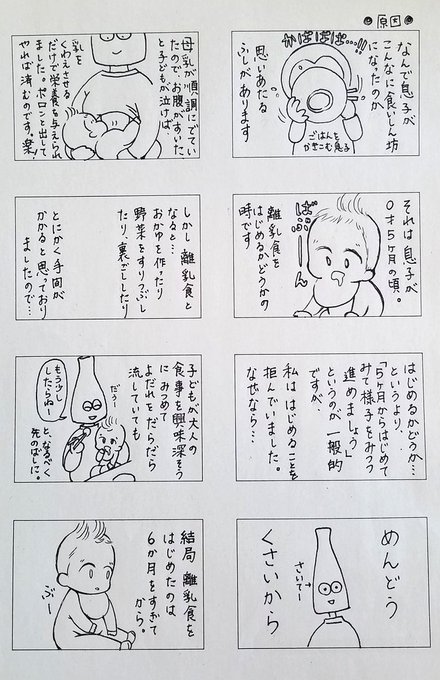 原因
なんで息子が
こんなに食いしん坊
になったのか
思いあたる
ふしがあります
がばばばば…!!!
ごはんを
かきこむ息子
それは 息子が
0才5ヶ月の頃。
離乳食を
はじめるかどうかの
時です
はじめるかどうか…
というより、
「5ヶ月からはじめて
みて様子をみつつ
進めましょう」
というのが一般的
ですが、
私は はじめることを
拒んでいました。
なぜなら…
めんどう
くさいから
さいてー
母乳が順調にでてい
たので、お腹がすいた
と子どもが泣けば
乳を
くわえさせる
だけで栄養を与えられ
ました。ペロンと出して
やれば済むのです。楽!
しかし 離乳食と
なると…
おかゆを作ったり
野菜をすりつぶし
たり裏ごししたり
とにかく手間が
かかると思っており
ましたので…
子どもが大人の
食事を興味深そう
にみつめて
よだれをだらだら
流していても
だらー
もう少し
したらねー
と、なるべく
先のばしに。
結局 離乳食を
はじめたのは
6か月をすぎて
から。
ぶー